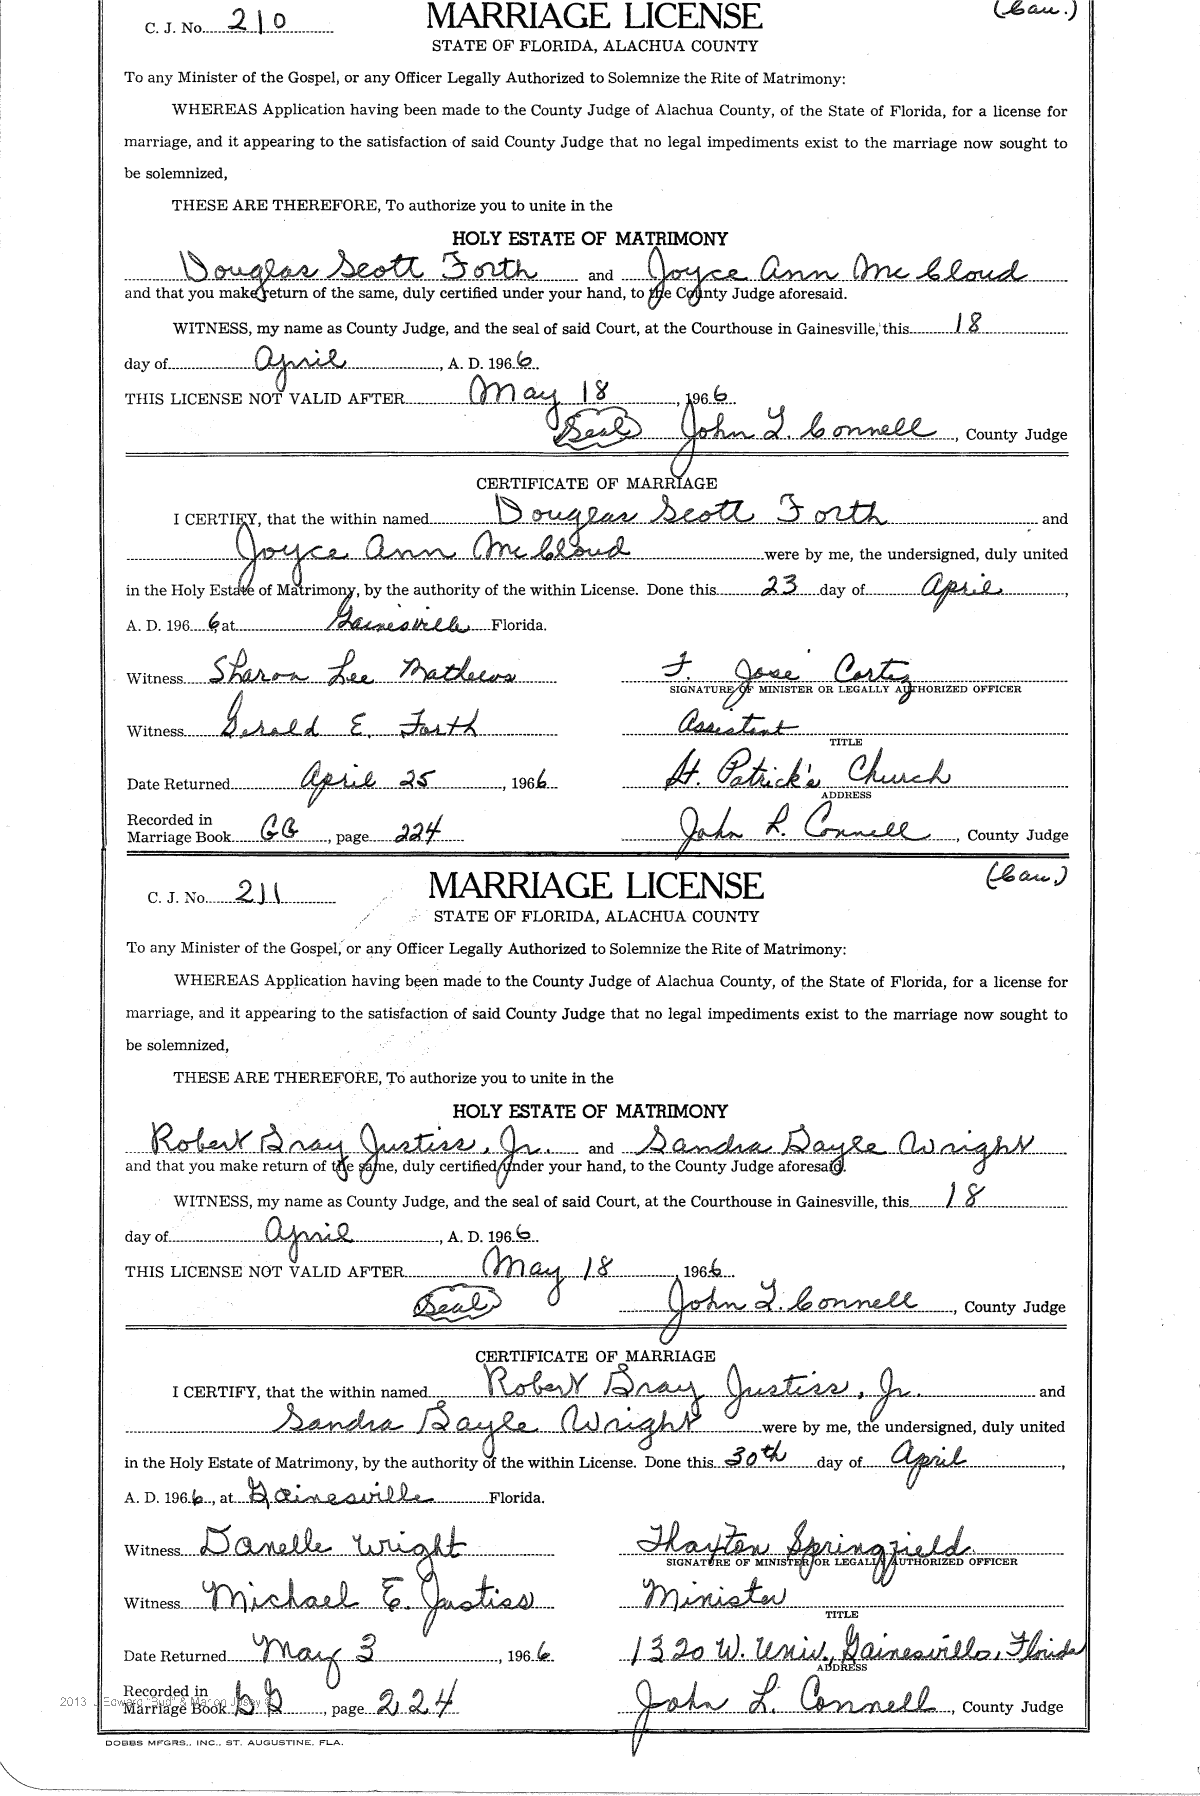 C. J. No. 210 MARRIAGE LICENSE (Cau.)
STATE OF FLORIDA, ALACHUA COUNTY
To any Minister of the Gospel, or any Officer Legally Authorized to Solemnize the Rite of Matrimony:
WHEREAS Application having been made to the County Judge of Alachua County, of the State of Florida, for a license for
marriage, and it appearing to the satisfaction of said County Judge that no legal impediments exist to the marriage now sought to
be solemnized,
THESE ARE THEREFORE, To authorize you to unite in the
HOLY ESTATE OF MATRIMONY
Douglas Scott Forth and Joyce Ann McCloud
and that you make return of the same, duly certified under your hand, to the County Judge aforesaid.
WITNESS, my name as County Judge, and the seal of said Court, at the Courthouse in Gainesville, this 18
day of April, A. D. 1966.
THIS LICENSE NOT VALID AFTER May 18, 1966.
Seal John L. Connell, County Judge
CERTIFICATE OF MARRIAGE
I CERTIFY, that the within named Douglas Scott Forth and
Joyce Ann McCloud were by me, the undersigned, duly united
in the Holy Estate of Matrimony, by the authority of the within License. Done this 23 day of April,
A. D. 1966 at Gainesville Florida.
Witness Sharon Lee Mathews F. Jose Cortez
SIGNATURE OF MINISTER OR LEGALLY AUTHORIZED OFFICER
Witness Gerald E. Forth Assistant
TITLE
Date Returned April 25, 1966 St. Patrick's Church
ADDRESS
Recorded in
Marriage Book GG, page 224 John L. Connell, County Judge
C. J. No. 211 MARRIAGE LICENSE (Cau.)
STATE OF FLORIDA, ALACHUA COUNTY
To any Minister of the Gospel, or any Officer Legally Authorized to Solemnize the Rite of Matrimony:
WHEREAS Application having been made to the County Judge of Alachua County, of the State of Florida, for a license for
marriage, and it appearing to the satisfaction of said County Judge that no legal impediments exist to the marriage now sought to
be solemnized,
THESE ARE THEREFORE, To authorize you to unite in the
HOLY ESTATE OF MATRIMONY
Robert Gray Justiss, Jr. and Sandra Gayle Wright
and that you make return of the same, duly certified under your hand, to the County Judge aforesaid.
WITNESS, my name as County Judge, and the seal of said Court, at the Courthouse in Gainesville, this 18
day of April, A. D. 1966.
THIS LICENSE NOT VALID AFTER May 18, 1966.
Seal John L. Connell, County Judge
CERTIFICATE OF MARRIAGE
I CERTIFY, that the within named Robert Gray Justiss, Jr. and
Sandra Gayle Wright were by me, the undersigned, duly united
in the Holy Estate of Matrimony, by the authority of the within License. Done this 30th day of April,
A. D. 1966, at Gainesville Florida.
Witness Danelle Wright Thayton Springfield
SIGNATURE OF MINISTER OR LEGALLY AUTHORIZED OFFICER
Witness Michael E. Justiss Minister
TITLE
Date Returned May 3, 1966 1320 W. Univ., Gainesville, Florida
ADDRESS
Recorded in
Marriage Book GG, page 224 John L. Connell, County Judge
DOBBS MFGRS., INC., ST. AUGUSTINE, FLA.